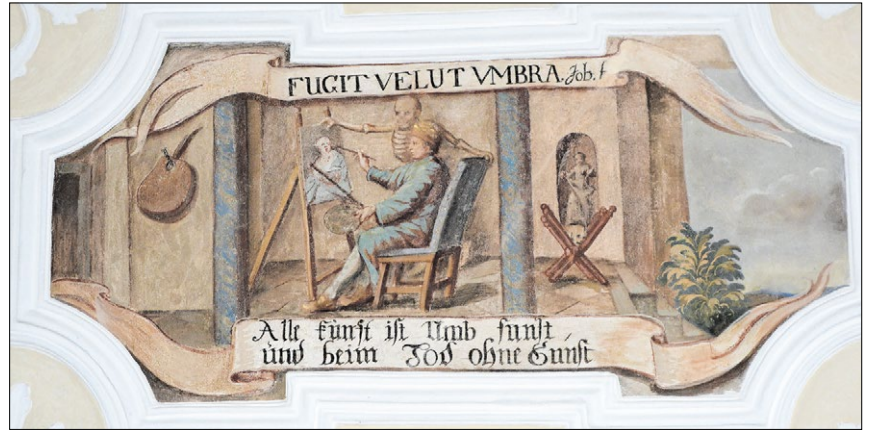 FUGIT VELUT VMBRA. Job.
Alle künst ist Umb sunst,
und beim Tod ohne Gunst